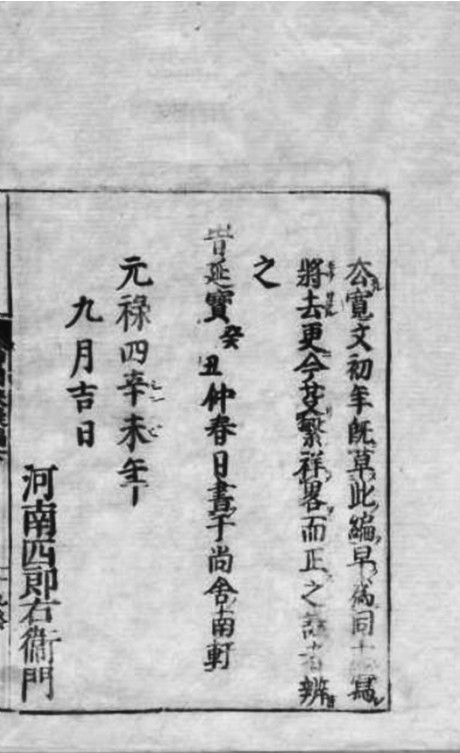 公寛文初年既草此編早爲同士寫
將去更今芟繁祥畧而正之讀者辨
之
旹延寶癸丑仲春日書于尚舍南軒
元祿四辛未年
九月吉日
河南四郎右衞門